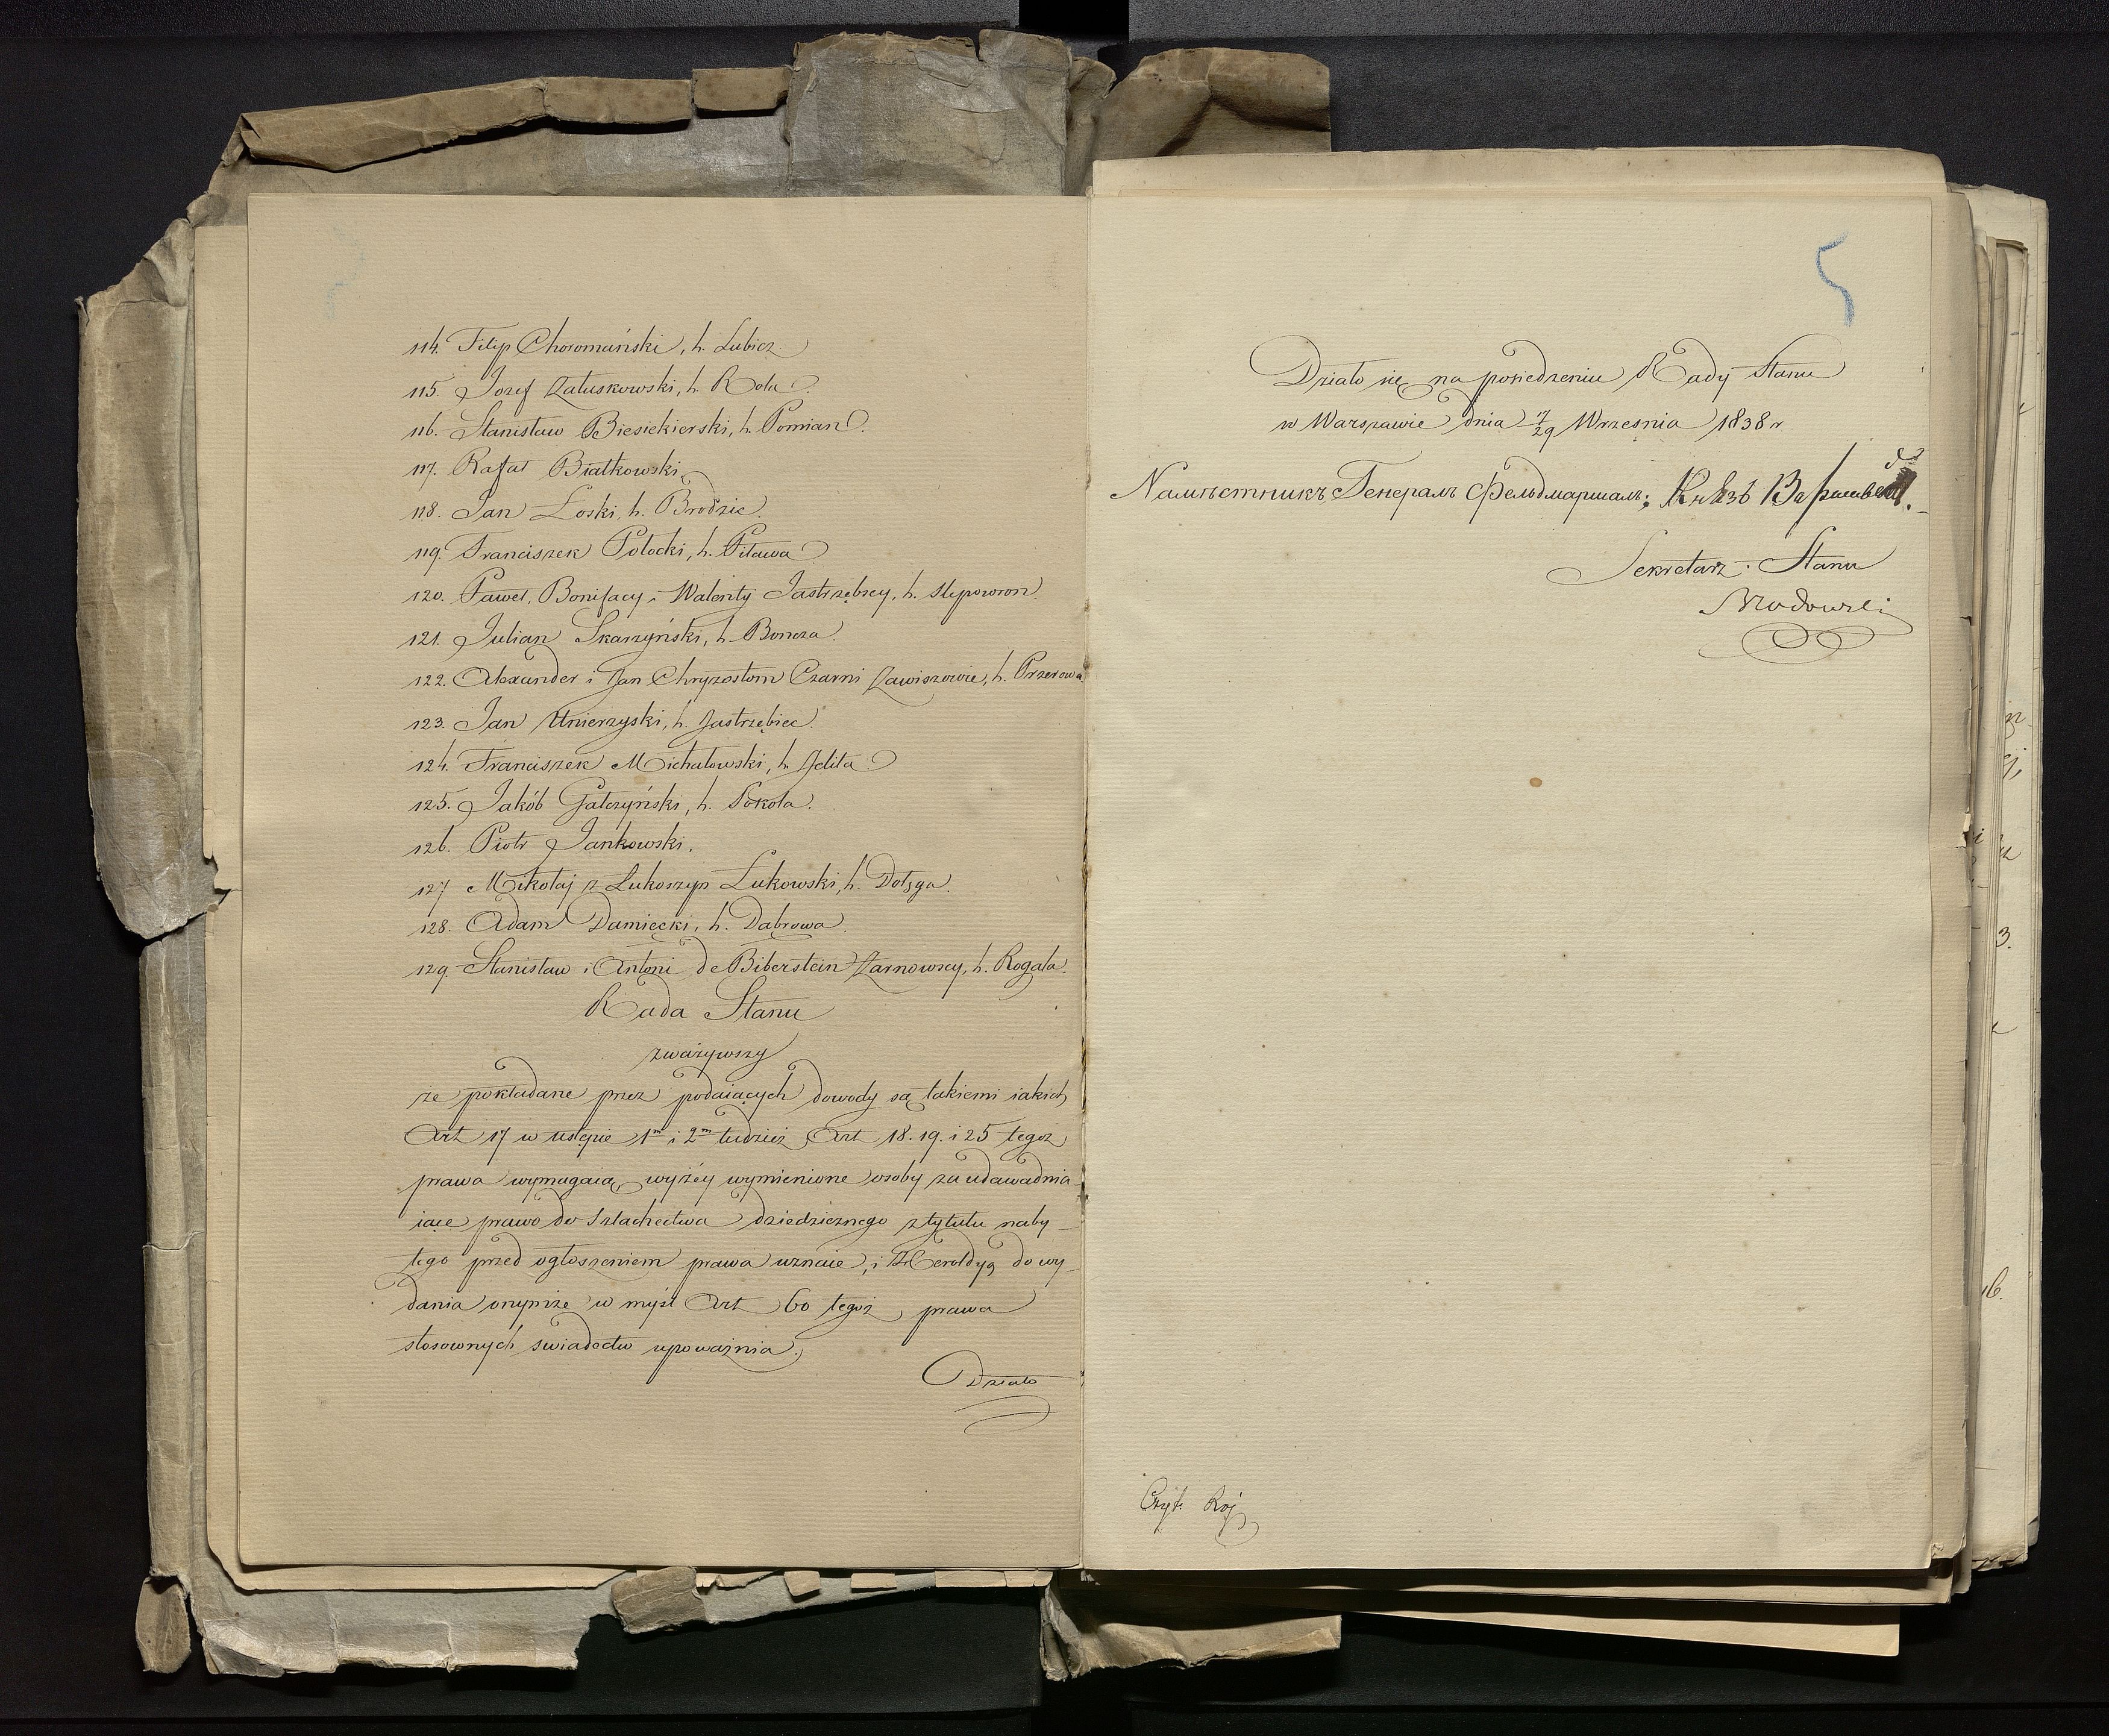 114. Filip Choromański, h. Lubicz
115. Jozef Załuskowski, h. Rola.
116. Stanisław Biesiekierski, h. Pomian.
117. Rafał Białkowski.
118. Jan Łoski, h. Brodzic.
119. Franciszek Potocki, h. Pilawa
120. Paweł, Bonifacy i Walenty Jastrzębscy, h. Slepowron.
121. Julian Skarzyński, h. Boncza.
122. Alexander i Jan Chryzostom Czarni Zawiszowie, h. Przerowa
123. Jan Unierzyski, h. Jastrzębiec.
124. Franciszek Michałowski, h. Jelita
125. Jakób Gałczyński, h. Sokola.
126. Piotr Jankowski.
127 Mikołaj z Lukoszyn Łukowski, h. Dołęga.
128. Adam Damięcki, h. Dąbrowa.
129. Stanisław i Antoni de Biberstein Zarnowscy, h. Rogala.
Rada Stanu
zważywszy
że pokładane przez podaiących dowody są takiemi iakich
Art 17 w ustępie 1m i 2m tudzież Art 18. 19. i 25 tegoż
prawa wymagaią, wyżéy wymienione osoby za udawadnia
iące prawo do Szlachectwa dziedzicznego z tytułu naby-
tego przed ogłoszeniem prawa uznaie, i Heroldyą do wy-
dania onymże w myśl Art 60 tegoż prawa
stosownych swiadectw upoważnia.
Działo
5
Działo się na posiedzeniu Rady Stanu
w Warszawie dnia 7/29 Wrzesnia 1838 r
Намѣстникъ, Генералъ Фельдмаршалъ; Князь Варшавскій.
Sekretarz Stanu
Czyt. Roj